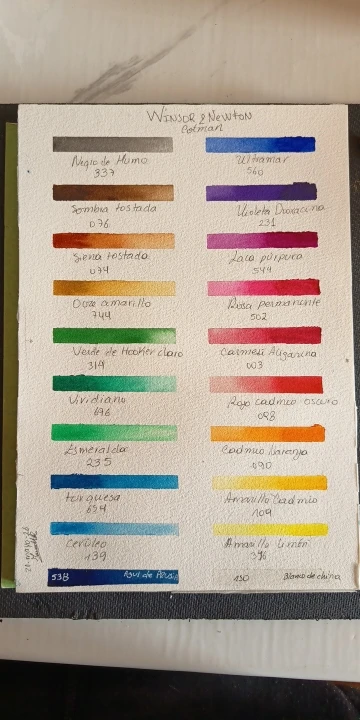 WINSOR & NEWTON
Cotman
Negro de Humo
337
Ultramar
560
Sombra tostada
076
Violeta Dioxacina
231
Siena tostada
074
Laca púrpura
544
Ocre amarillo
744
Rosa permanente
502
Verde de Hooker claro
314
Carmesí Alizarina
003
Viridiano
696
Rojo cadmio oscuro
098
Esmeralda
235
Cadmio Naranja
090
turquesa
654
Amarillo Cadmio
109
Cerúleo
139
Amarillo Limón
346
538 Azul de Prusia
150 Blanco de china